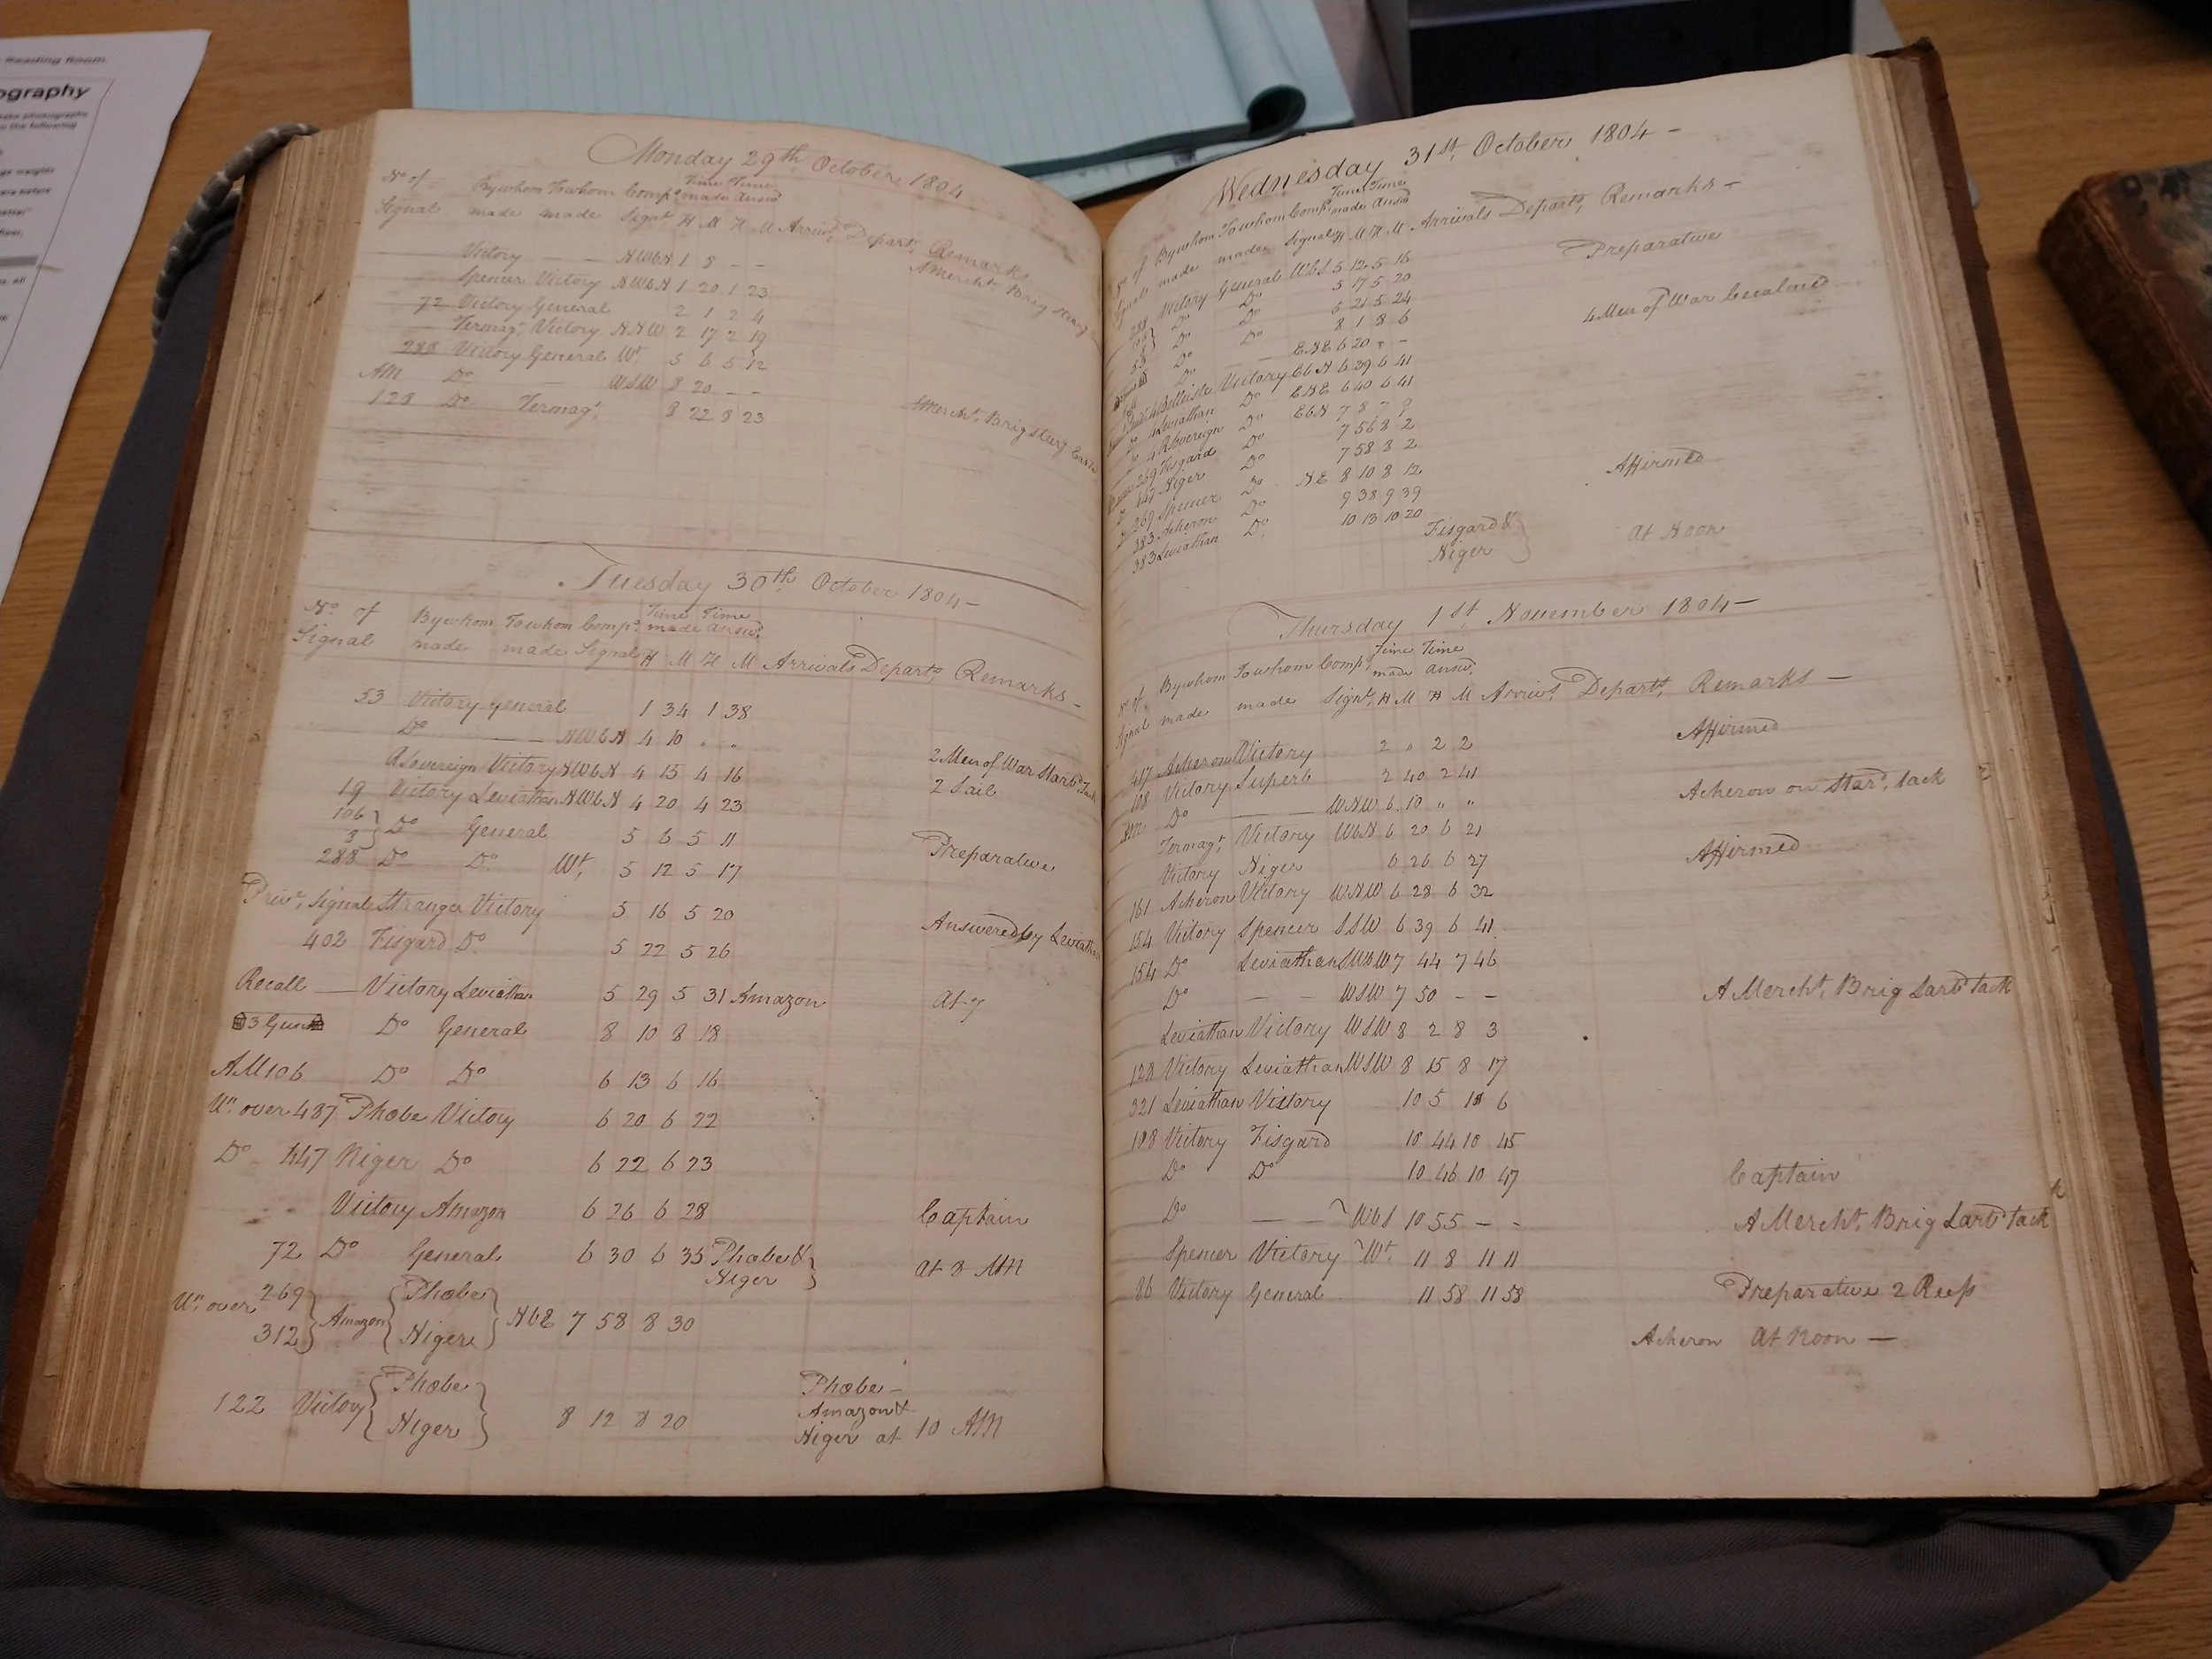 Reading Room.
ography
Monday 29th, October, 1804
No of By whom To whom Comps. Time Time
made Answd
Signal made made Signl. H M H M Arrivs, Departs, Remarks
Victory — — NWbN 1 8 - -
A Mercht. Brig
Spencer Victory NWbN 1 20 1 23
72 Victory General 2 1 2 4
Termagt, Victory NNW 2 17 2 19
288 Victory General Wt. 5 6 5 12
AM Do. — WSW 8 20 - -
128 Do. Termagt. 8 22 8 23
A Mercht. Brig
Tuesday 30th, October 1804 —
No. of By whom To whom Comps. Time Time
made Answd.
Signal made made Signal H M H M Arrivals Departs, Remarks —
53 Victory General 1 34 1 38
Do — — NWbN 4 10 " "
RSovereign Victory NWbN 4 15 4 16 2 Men of War Starbd. Tack
19 Victory Leviathan NWbN 4 20 4 23 2 Sail
106
3 } Do General 5 6 5 11
288 Do Do. Wt, 5 12 5 17 Preparative
Prive, Signal Stranger Victory 5 16 5 20
402 Fisgard Do 5 22 5 26 Answered by Leviathan
Recall — Victory Leviathan 5 29 5 31 Amazon At 7
3 Guns Do General 8 10 8 18
AM 106 Do Do 6 13 6 16
Un. over 487 Phœbe Victory 6 20 6 22
Do 447 Niger Do 6 22 6 23
Victory Amazon 6 26 6 28 Captain
72 Do General 6 30 6 35 Phœbe &
Niger } at 8 AM
Un. over 269
312 } Amazon { Phœbe
Niger } NbE 7 58 8 30
122 Victory { Phœbe
Niger } 8 12 8 20 Phœbe —
Amazon &
Niger at 10 AM
Wednesday 31st, October 1804 —
No of By whom To whom Comps. Time Time
made Answd
Signal made made Signals H M H M Arrivals Departs, Remarks —
288 Victory General WbS 5 12 5 16
Do Do 5 17 5 20 Preparative
Do Do 5 21 5 24
53 Do Do 8 1 8 6
Do — ENE 6 20 - - 4 Men of War becalmed
Belleisle Victory EbN 6 39 6 41
Leviathan Do ENE 6 40 6 41
RSovereign Do EbN 7 8 7 9
269 Fisgard Do 7 56 8 2
447 Niger Do 7 58 8 2
269 Spencer Do NE 8 10 8 12 Affirmed
383 Acheron Do 9 38 9 39
383 Leviathan Do, 10 13 10 20
Fisgard &
Niger } At Noon
Thursday 1st, November 1804 —
No of By whom To whom Comps, Time Time
made Answd.
Signal made made Signl, H M H M Arrivs, Departs, Remarks —
417 Acheron Victory 2 " 2 2 Affirmed
108 Victory Superb 2 40 2 41
AM Do — WNW 6 10 " " Acheron on Star. tack
Termagt, Victory WbN 6 20 6 21
Victory Niger 6 26 6 27 Affirmed
161 Acheron Victory WNW 6 28 6 32
154 Victory Spencer SSW 6 39 6 41
154 Do Leviathan SWbW 7 44 7 46
Do — — WSW 7 50 - - A Mercht, Brig Larbd tack
Leviathan Victory WSW 8 2 8 3
128 Victory Leviathan WSW 8 15 8 17
321 Leviathan Victory 10 5 10 6
108 Victory Fisgard 10 44 10 45
Do Do 10 46 10 47 Captain
Do — — WbS 10 55 - - A Mercht, Brig Larbd tack
Spencer Victory Wt. 11 8 11 11
86 Victory General 11 58 11 58 Preparative 2 Reefs
Acheron At Noon —